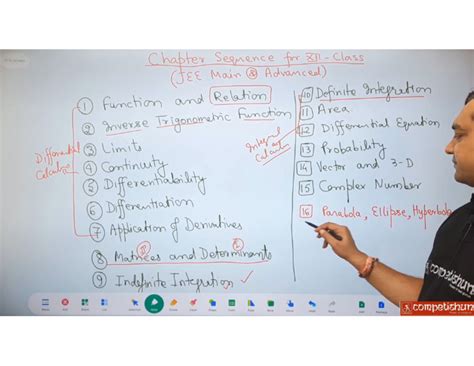 Chapter Sequence for XII-Class
(JEE Main & Advanced)
① Function and Relation
② Inverse Trigonometric Function
③ Limits
④ Continuity
⑤ Differentiability
⑥ Differentiation
⑦ Application of Derivatives
⑧ Matrices and Determinants
① ②
⑨ Indefinite Integration ✓
Differential
Calculus
10 Definite Integration
11 Area
12 Differential Equation
13 Probability
14 Vector and 3-D
15 Complex Number
16 Parabola, Ellipse, Hyperbola
Integral
Calculus
competishun
competishun